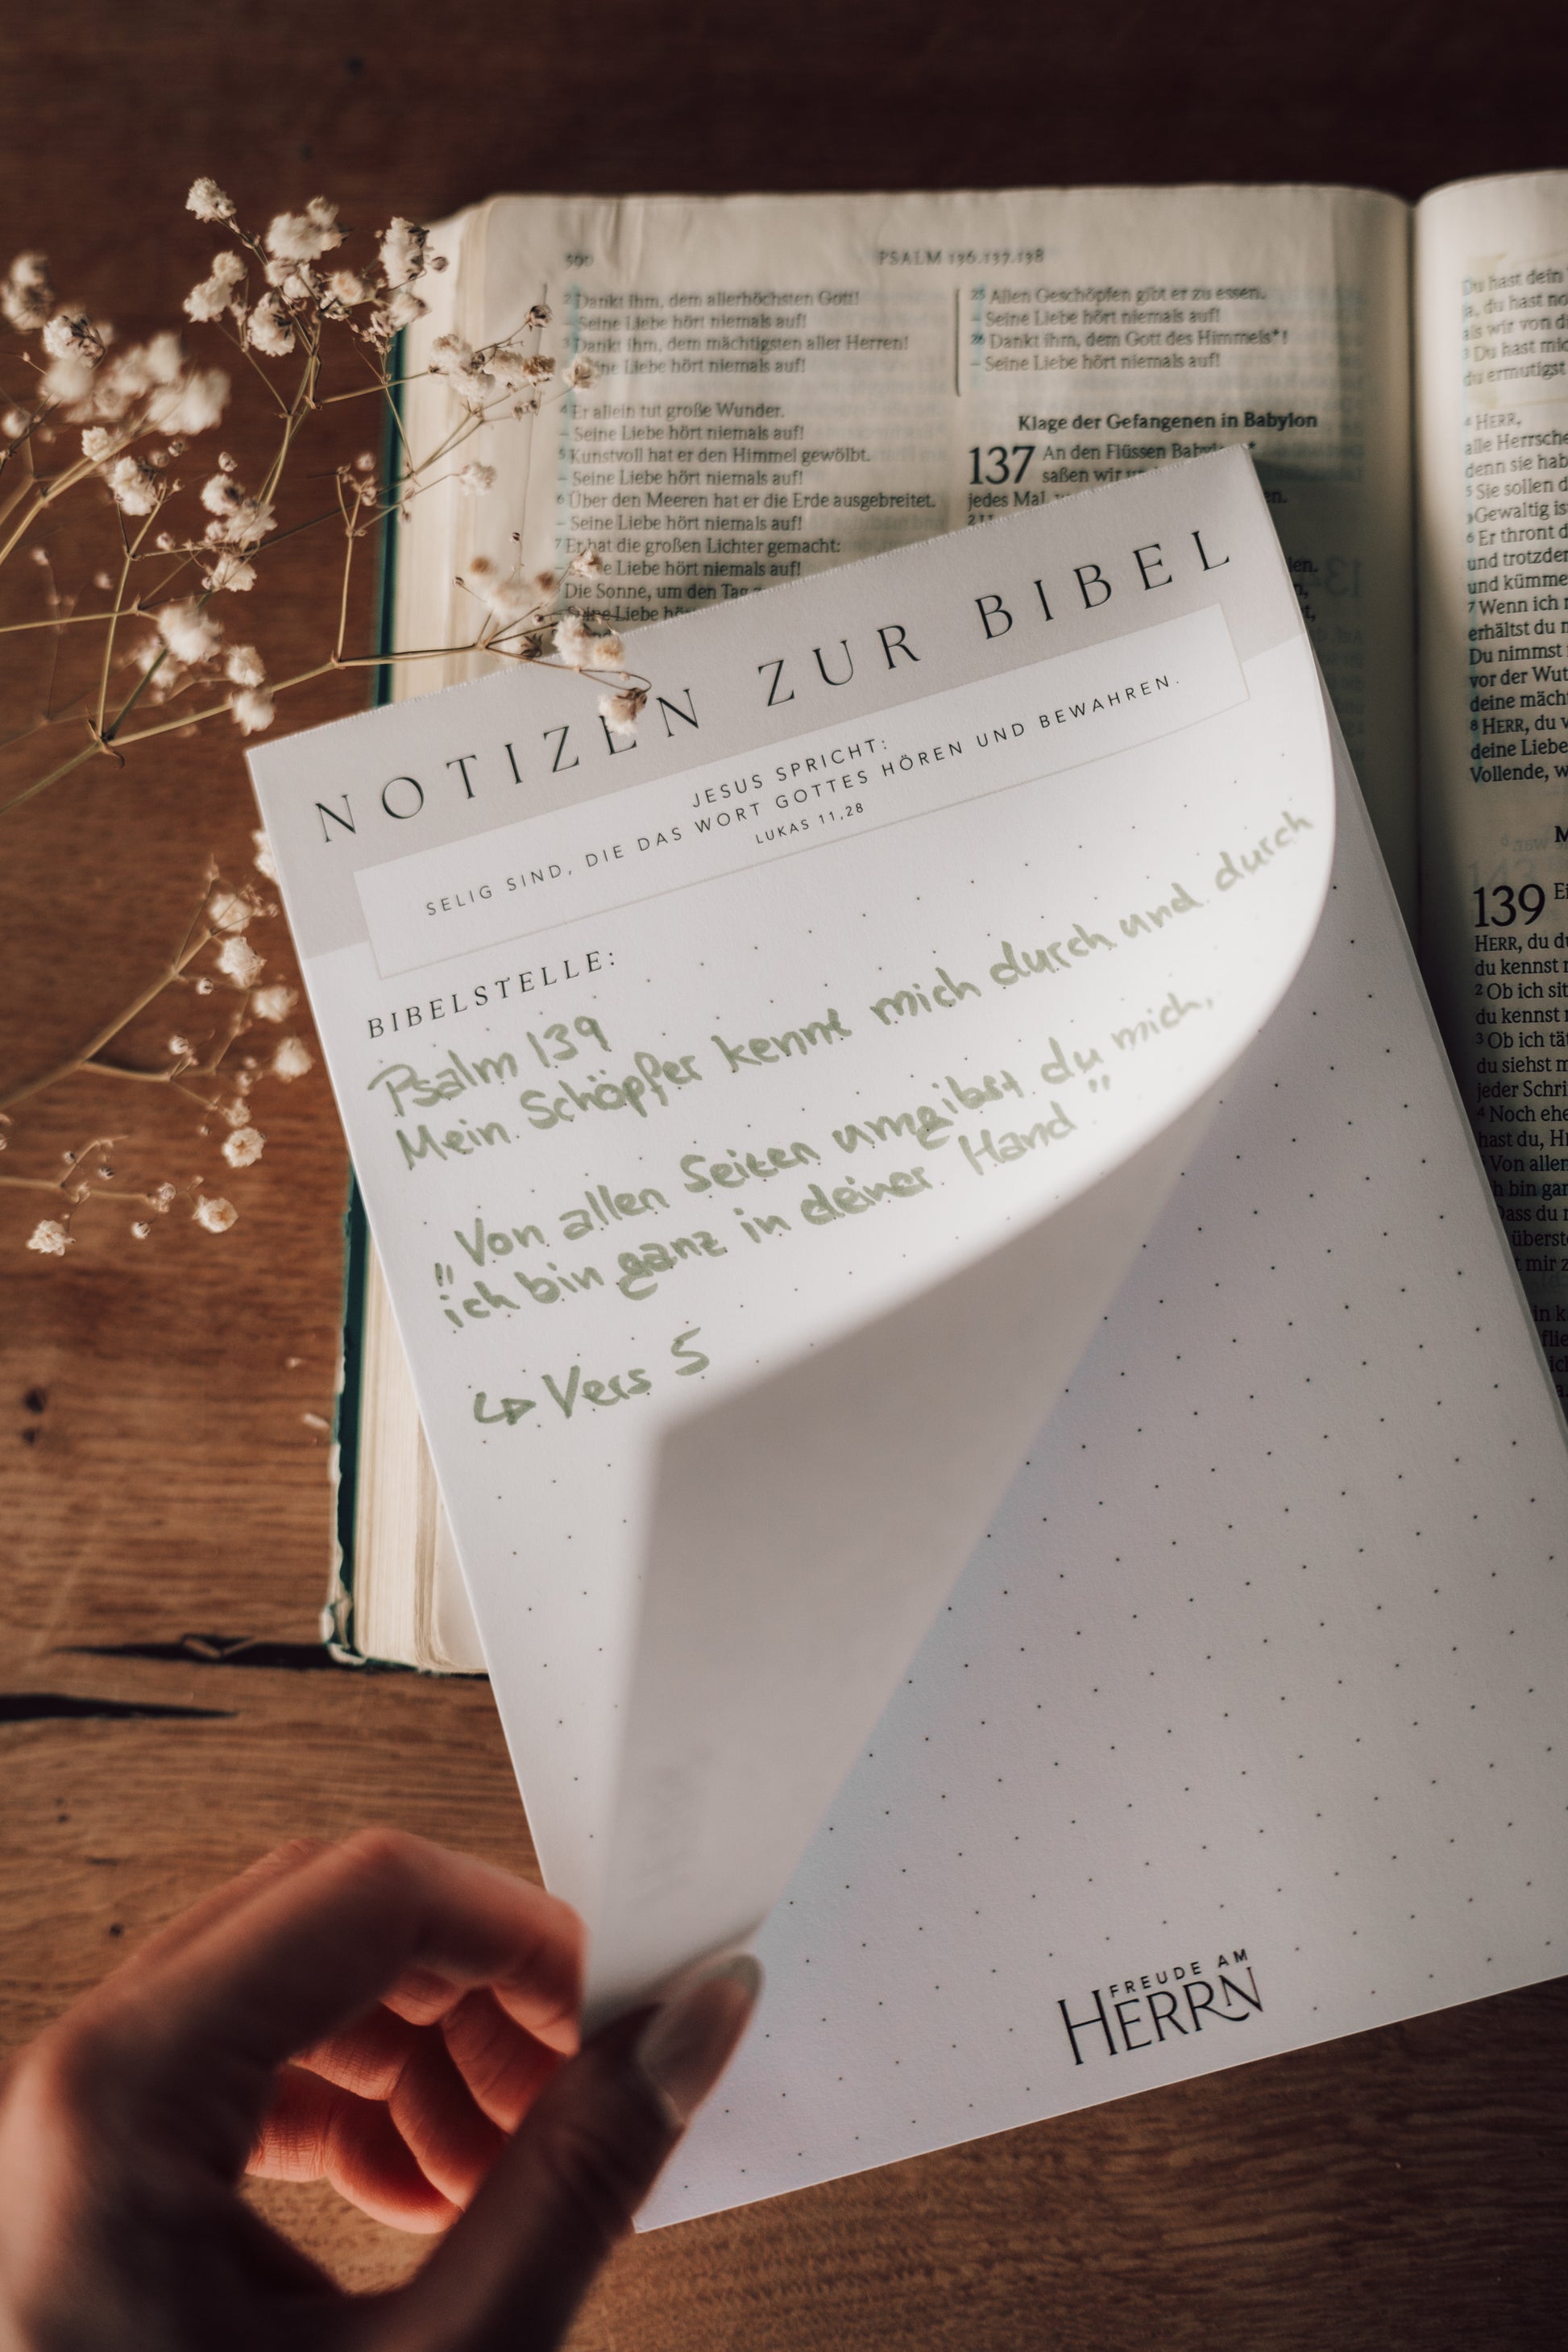 590
PSALM 136.137.138
2 Dankt ihm, dem allerhöchsten Gott!
– Seine Liebe hört niemals auf!
3 Dankt ihm, dem mächtigsten aller Herren!
Liebe hört niemals auf!
4 Er allein tut große Wunder.
– Seine Liebe hört niemals auf!
5 Kunstvoll hat er den Himmel gewölbt.
– Seine Liebe hört niemals auf!
6 Über den Meeren hat er die Erde ausgebreitet.
– Seine Liebe hört niemals auf!
7 Er hat die großen Lichter gemacht:
Liebe hört niemals auf!
Die Sonne, um den Tag
Seine Liebe
25 Allen Geschöpfen gibt er zu essen.
– Seine Liebe hört niemals auf!
26 Dankt ihm, dem Gott des Himmels*!
– Seine Liebe hört niemals auf!
Klage der Gefangenen in Babylon
137 An den Flüssen
saßen wir
jedes Mal,
Du hast dein
du hast
als wir von
3 Du hast
du ermutigst
4 HERR,
alle
denn sie
5 Sie sollen
Gewaltig
6 Er thront
und
und
7 Wenn ich
erhältst du
Du nimmst
vor der Wut
deine
8 HERR, du
deine Liebe
Vollende,
139
HERR, du
du kennst
2 Ob ich
du kennst
3 Ob ich
du siehst
jeder
4 Noch ehe
hast du,
Von allen
bin
NOTIZEN ZUR BIBEL
JESUS SPRICHT:
SELIG SIND, DIE DAS WORT GOTTES HÖREN UND BEWAHREN.
LUKAS 11,28
BIBELSTELLE:
Psalm 139
Mein Schöpfer kennt mich durch und durch
„Von allen Seiten umgibst du mich,
ich bin ganz in deiner Hand"
↳ Vers 5
FREUDE AM
HERRN